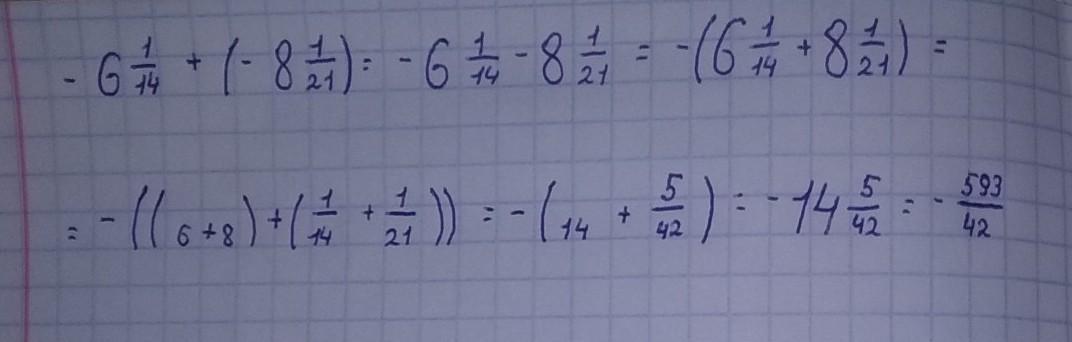 - 6 1/14 + (- 8 1/21) = - 6 1/14 - 8 1/21 = -(6 1/14 + 8 1/21) =
= -((6+8) + (1/14 + 1/21)) = -(14 + 5/42) = -14 5/42 = - 593/42